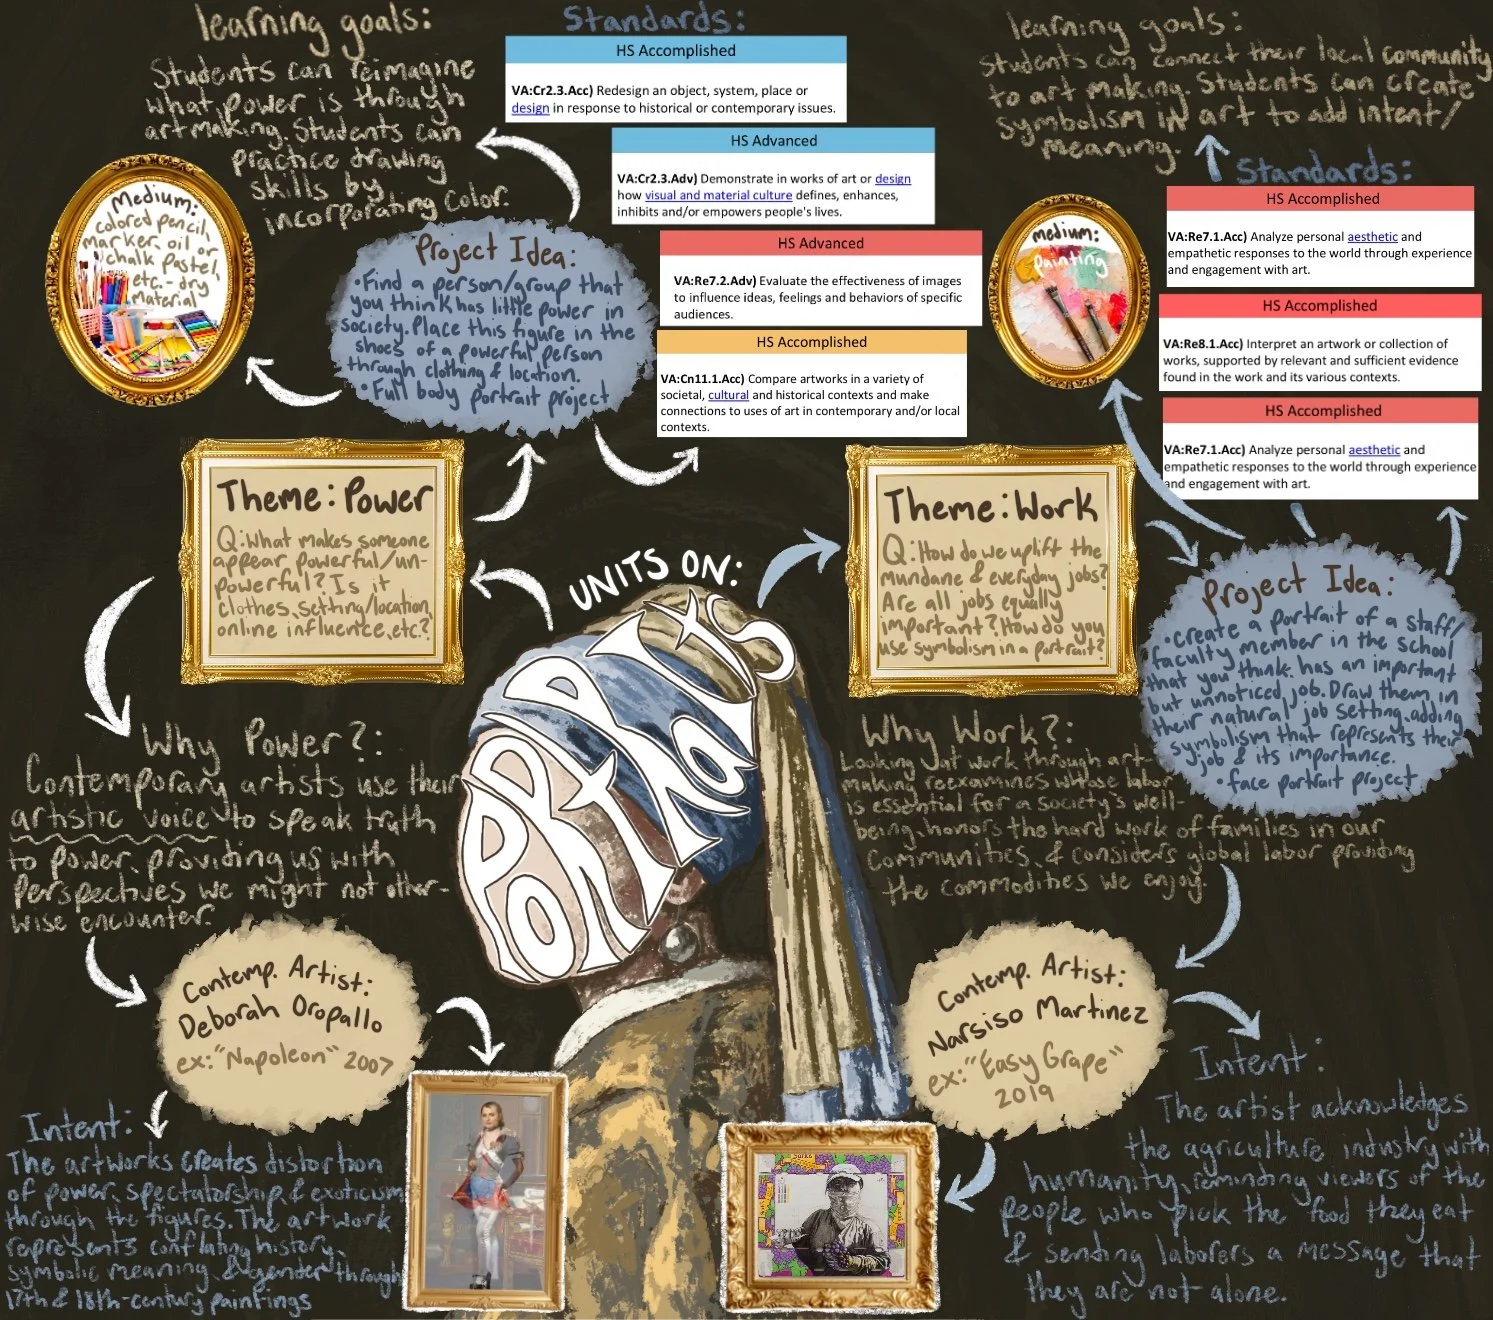 learning goals:
Students can reimagine
what power is through
artmaking. Students can
practice drawing
skills by
incorporating color.
Standards:
HS Accomplished
VA:Cr2.3.Acc) Redesign an object, system, place or
design in response to historical or contemporary issues.
HS Advanced
VA:Cr2.3.Adv) Demonstrate in works of art or design
how visual and material culture defines, enhances,
inhibits and/or empowers people's lives.
HS Advanced
VA:Re7.2.Adv) Evaluate the effectiveness of images
to influence ideas, feelings and behaviors of specific
audiences.
HS Accomplished
VA:Cn11.1.Acc) Compare artworks in a variety of
societal, cultural and historical contexts and make
connections to uses of art in contemporary and/or local
contexts.
Medium:
colored pencil,
marker, oil or
chalk pastel,
etc. - dry
material
Project Idea:
•Find a person/group that
you think has little power in
society. Place this figure in the
shoes of a powerful person
through clothing & location.
•Full body portrait project
Theme: Power
Q: What makes someone
appear powerful/un-
powerful? Is it
clothes, setting/location,
online influence, etc.?
Why Power?:
Contemporary artists use their
artistic voice to speak truth
to power, providing us with
perspectives we might not other-
wise encounter.
Contemp. Artist:
Deborah Oropallo
ex: "Napoleon" 2007
Intent:
The artworks creates distortion
of power, spectatorship, & exoticism
through the figures. The artwork
represents conflating history,
symbolic meaning, & gender through
17th & 18th-century paintings
UNITS ON:
PORTRAITS
learning goals:
Students can connect their local community
to art making. Students can create
symbolism in art to add intent/
meaning.
Standards:
HS Accomplished
VA:Re7.1.Acc) Analyze personal aesthetic and
empathetic responses to the world through experience
and engagement with art.
HS Accomplished
VA:Re8.1.Acc) Interpret an artwork or collection of
works, supported by relevant and sufficient evidence
found in the work and its various contexts.
HS Accomplished
VA:Re7.1.Acc) Analyze personal aesthetic and
empathetic responses to the world through experience
and engagement with art.
medium:
painting
Theme: Work
Q: How do we uplift the
mundane & everyday jobs?
Are all jobs equally
important? How do you
use symbolism in a portrait?
Project Idea:
•create a portrait of a staff/
faculty member in the school
that you think has an important
but unnoticed job. Draw them in
their natural job setting, adding
symbolism that represents their
job & its importance.
•face portrait project
Why Work?:
Looking at work through art-
making reexamines whose labor
is essential for a society's well-
being, honors the hard work of families in our
communities, & considers global labor providing
the commodities we enjoy.
Contemp. Artist:
Narsiso Martinez
ex: "Easy Grape"
2019
Intent:
The artist acknowledges
the agriculture industry with
humanity, reminding viewers of the
people who pick the food they eat
& sending laborers a message that
they are not alone.